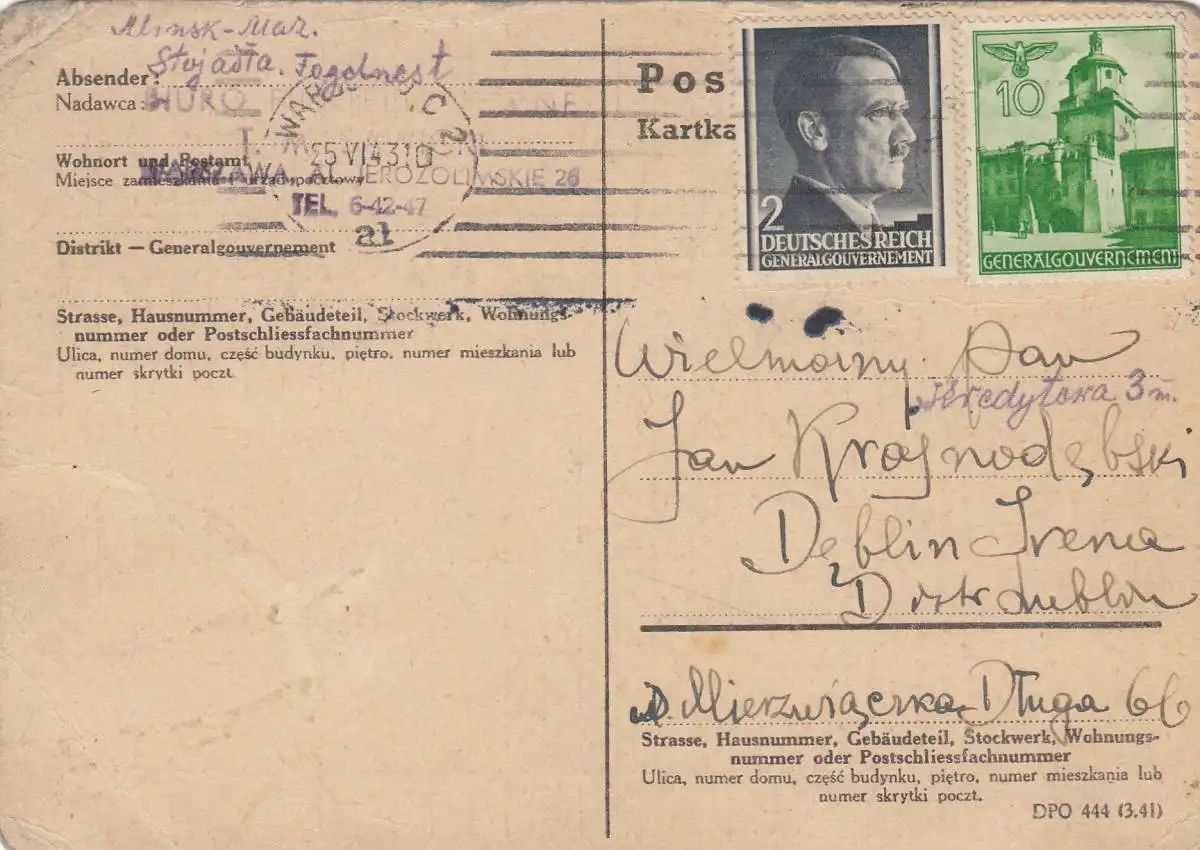 Minsk-Maz.
Stojadła.
Absender:
Nadawca:
BIURO
WARSZAWA C 2
25 VI 43 10
Wohnort und Postamt
Miejsce zamieszkania i urząd pocztowy
WARSZAWA, AL. JEROZOLIMSKIE 26
TEL. 6-42-47
a1
Distrikt — Generalgouvernement
Strasse, Hausnummer, Gebäudeteil, Stockwerk, Wohnungs-
nummer oder Postschliessfachnummer
Ulica, numer domu, część budynku, piętro, numer mieszkania lub
numer skrytki poczt.
Pos
Kartka
2
DEUTSCHES REICH
GENERALGOUVERNEMENT
10
GENERALGOUVERNEMENT
Wielmożny Pan
3 m.
Jan Krasnodębski
Dęblin Irena
Distr Lublin
Długa 66
Strasse, Hausnummer, Gebäudeteil, Stockwerk, Wohnungs-
nummer oder Postschliessfachnummer
Ulica, numer domu, część budynku, piętro, numer mieszkania lub
numer skrytki poczt.
DPO 444 (3.41)